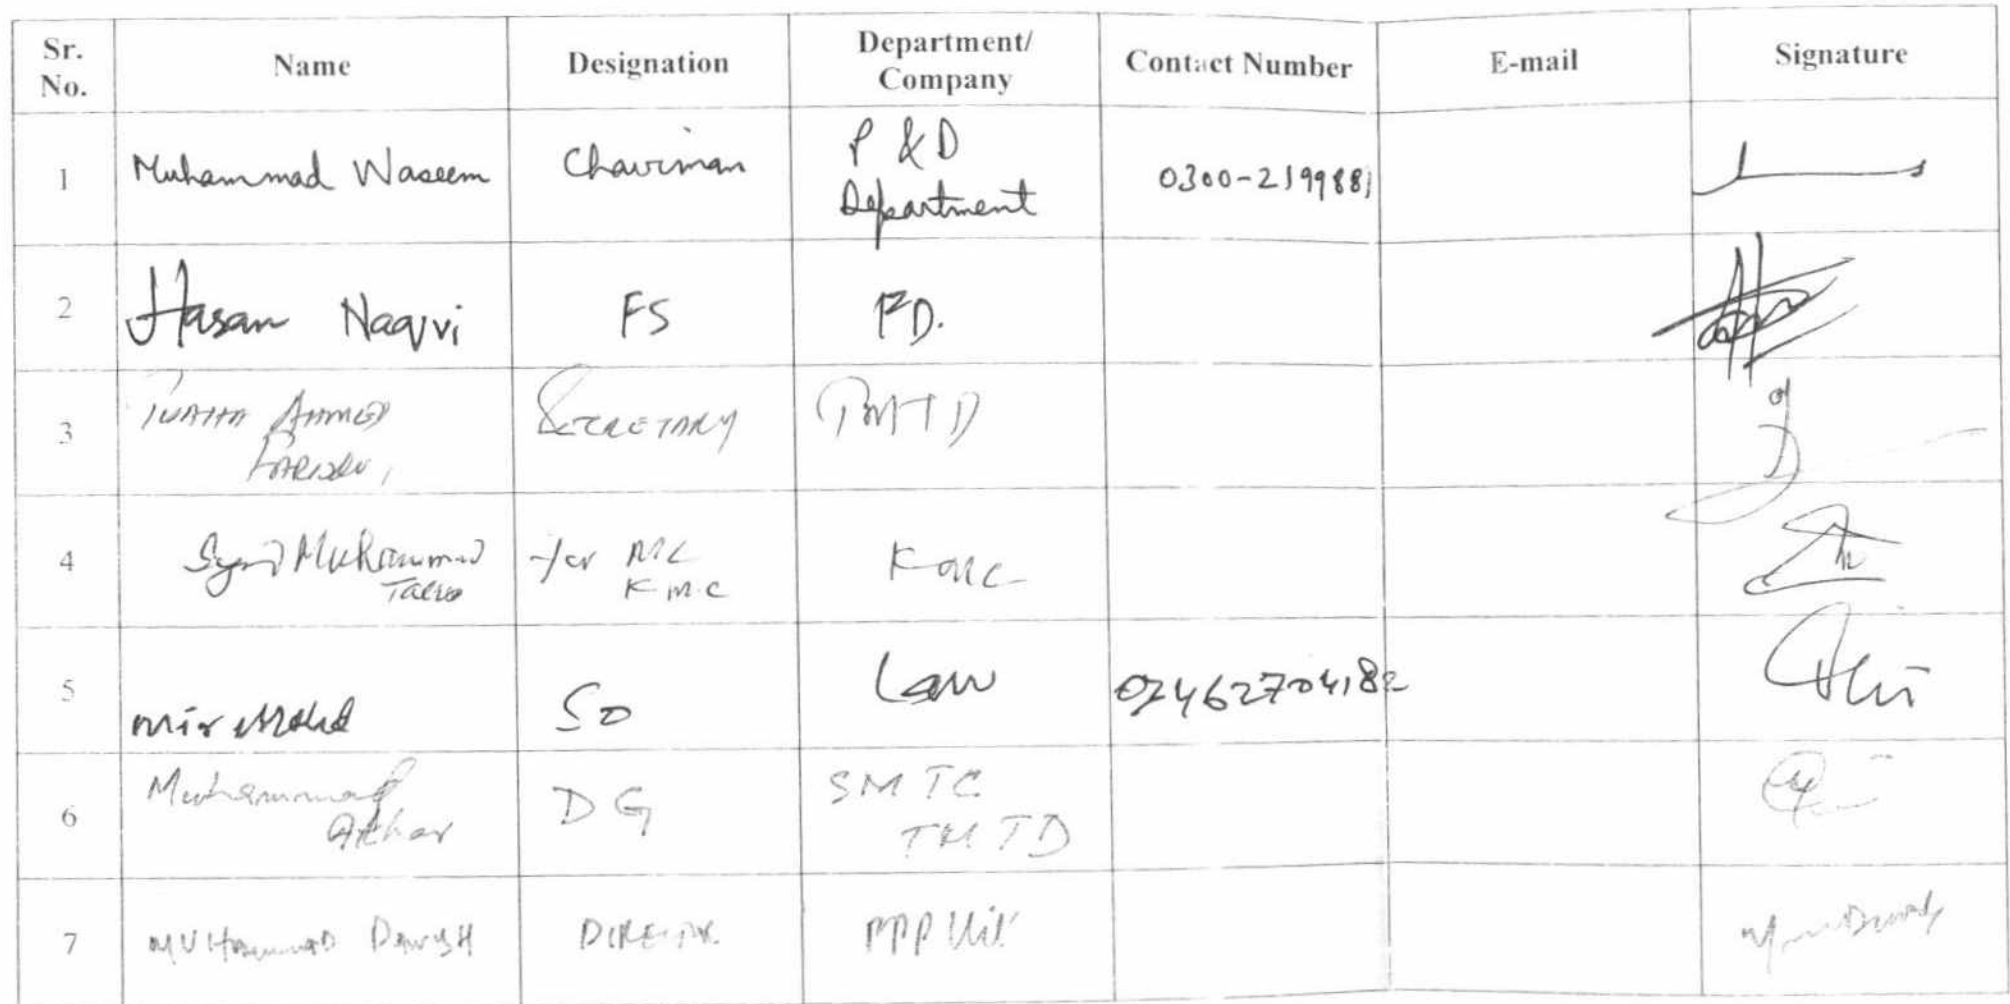 Sr. No. Name Designation Department/ Company Contact Number E-mail Signature
1 Muhammad Waseem Chairman P & D Department 0300-2199881
2 Hasan Naqvi FS FD.
3 AHMED SECRETARY TMTD
4 Syed Muhammad for MC K.M.C KMC
5 Mir SO Law
6 Muhammad Athar DG SMTC TMTD
7 MUHAMMAD DANISH DIRECTOR PPP Unit